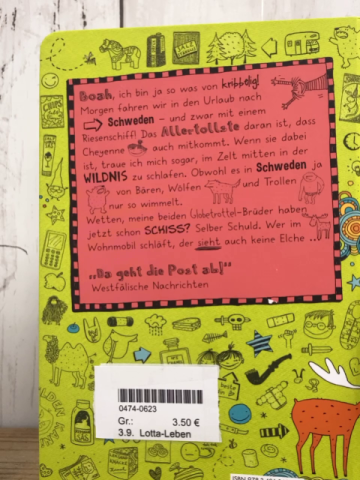 Boah, ich bin ja so was von kribbelig!
Morgen fahren wir in den Urlaub nach
Schweden – und zwar mit einem
Riesenschiff! Das Allertollste daran ist, dass
Cheyenne auch mitkommt. Wenn sie dabei
ist, traue ich mich sogar, im Zelt mitten in der
WILDNIS zu schlafen. Obwohl es in Schweden ja
von Bären, Wölfen und Trollen
nur so wimmelt.
Wetten, meine beiden Globetrottel-Brüder haben
jetzt schon SCHISS? Selber Schuld. Wer im
Wohnmobil schläft, der sieht auch keine Elche ...
„Da geht die Post ab!“
Westfälische Nachrichten
0474-0623
Gr.: 3.50 €
3.9. Lotta-Leben